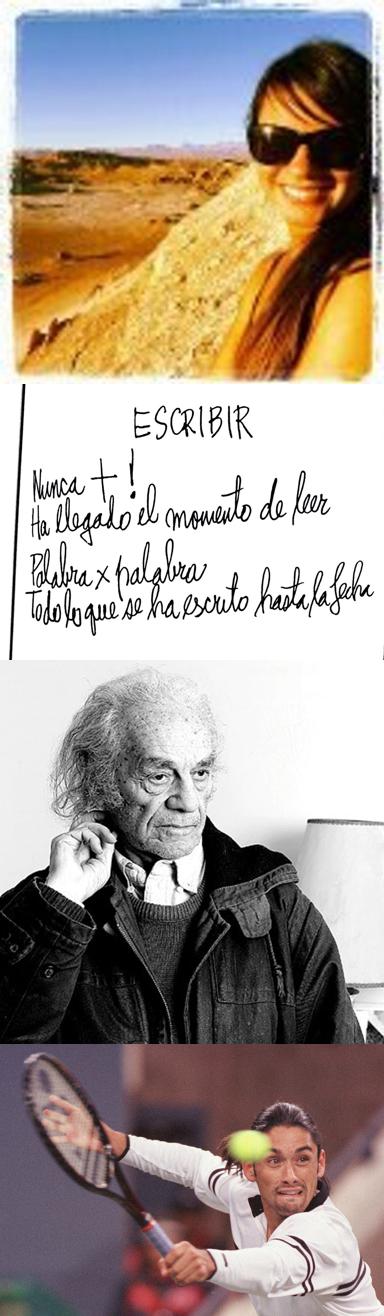 ESCRIBIR
Nunca + !
Ha llegado el momento de leer
Palabra x palabra
Todo lo que se ha escrito hasta la fecha